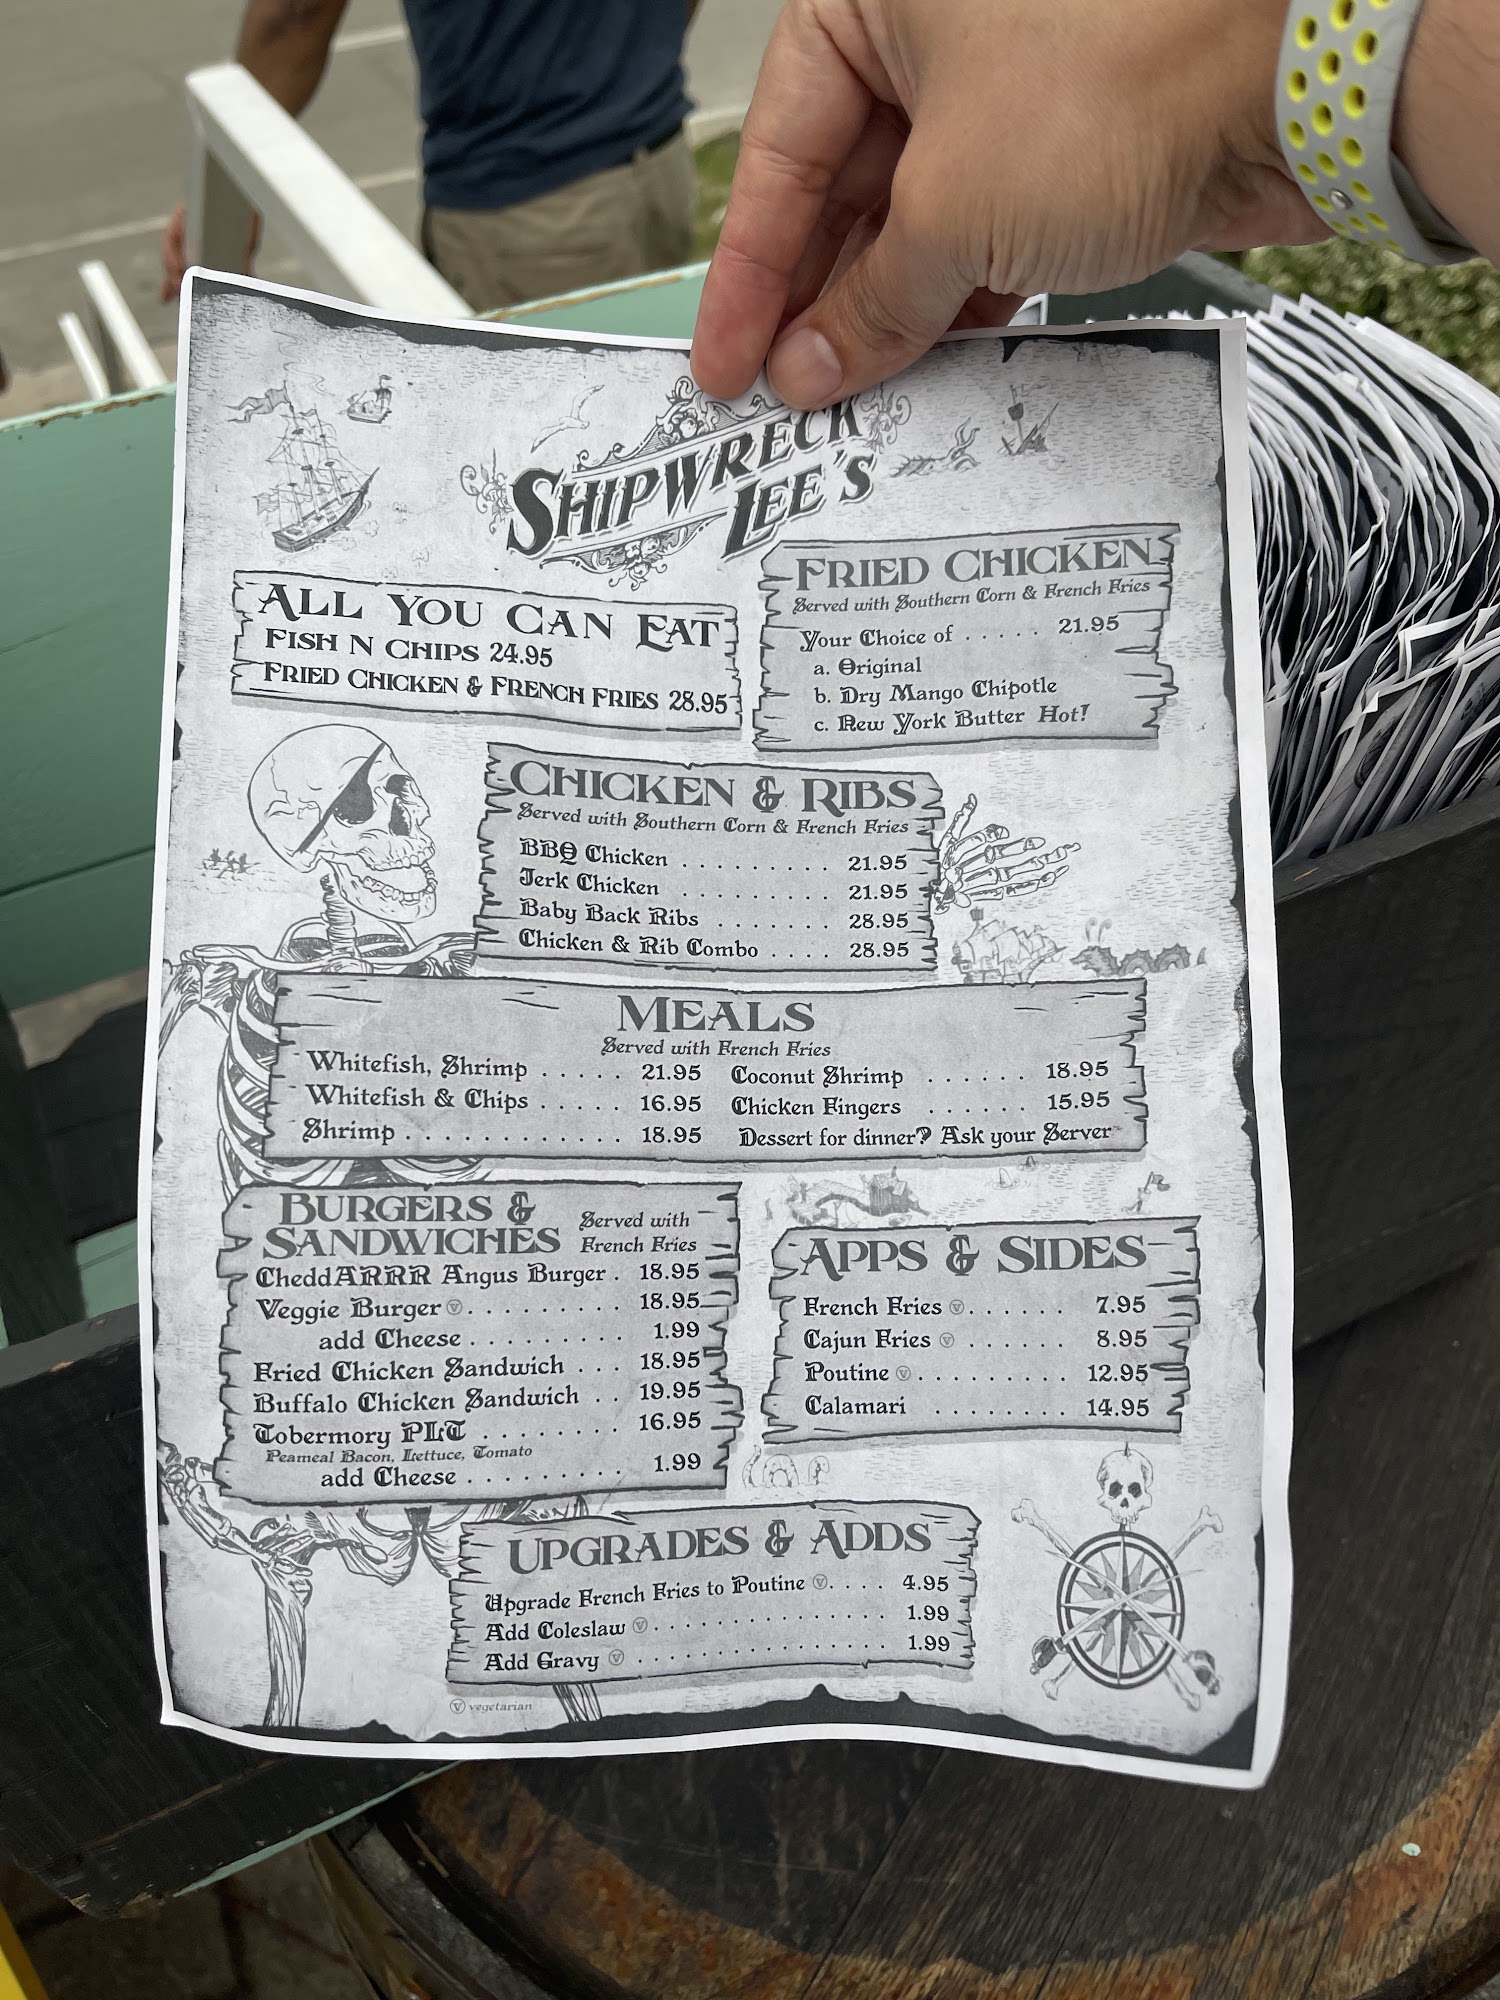 SHIPWRECK
LEE'S
ALL YOU CAN EAT
FISH N CHIPS 24.95
FRIED CHICKEN & FRENCH FRIES 28.95
FRIED CHICKEN
Served with Southern Corn & French Fries
Your Choice of ..... 21.95
a. Original
b. Dry Mango Chipotle
c. New York Butter Hot!
CHICKEN & RIBS
Served with Southern Corn & French Fries
BBQ Chicken ........ 21.95
Jerk Chicken ........ 21.95
Baby Back Ribs ....... 28.95
Chicken & Rib Combo .... 28.95
MEALS
Served with French Fries
Whitefish, Shrimp ..... 21.95
Whitefish & Chips ..... 16.95
Shrimp ............ 18.95
Coconut Shrimp ...... 18.95
Chicken Fingers ...... 15.95
Dessert for dinner? Ask your Server
BURGERS &
SANDWICHES
Served with
French Fries
CheddARRR Angus Burger . 18.95
Veggie Burger Ⓥ ......... 18.95
add Cheese ......... 1.99
Fried Chicken Sandwich ... 18.95
Buffalo Chicken Sandwich .. 19.95
Tobermory PLT ........ 16.95
Peameal Bacon, Lettuce, Tomato
add Cheese ......... 1.99
APPS & SIDES
French Fries Ⓥ ...... 7.95
Cajun Fries Ⓥ ...... 8.95
Poutine Ⓥ ......... 12.95
Calamari ........ 14.95
UPGRADES & ADDS
Upgrade French Fries to Poutine Ⓥ .... 4.95
Add Coleslaw Ⓥ .............. 1.99
Add Gravy Ⓥ ............... 1.99
Ⓥ vegetarian